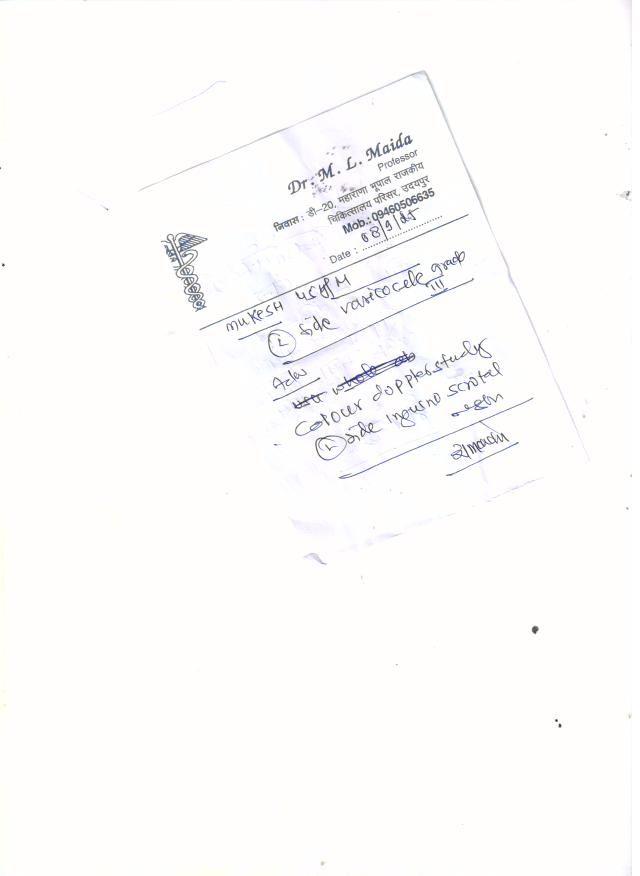 Dr. M. L. Maida
Professor
निवास : डी-20, महाराणा भूपाल राजकीय
चिकित्सालय परिसर, उदयपुर
Mob.: 09460506635
Date :
MUKESH 45 M
(L) side varicocele grade
III
Adv
Colour doppler study
(L) side inguino scrotal
region